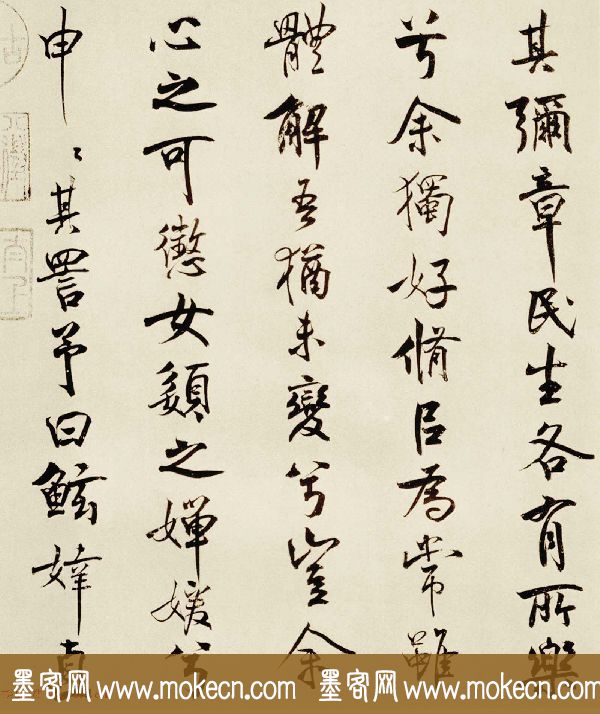 其彌章民生各有所樂
兮余獨好脩㠯為常雖
體解吾猶未變兮豈余
心之可懲女嬃之嬋媛兮
申〻其詈予曰鮌婞直
墨客网 www.mokecn.com 墨客网 www.mokecn.com